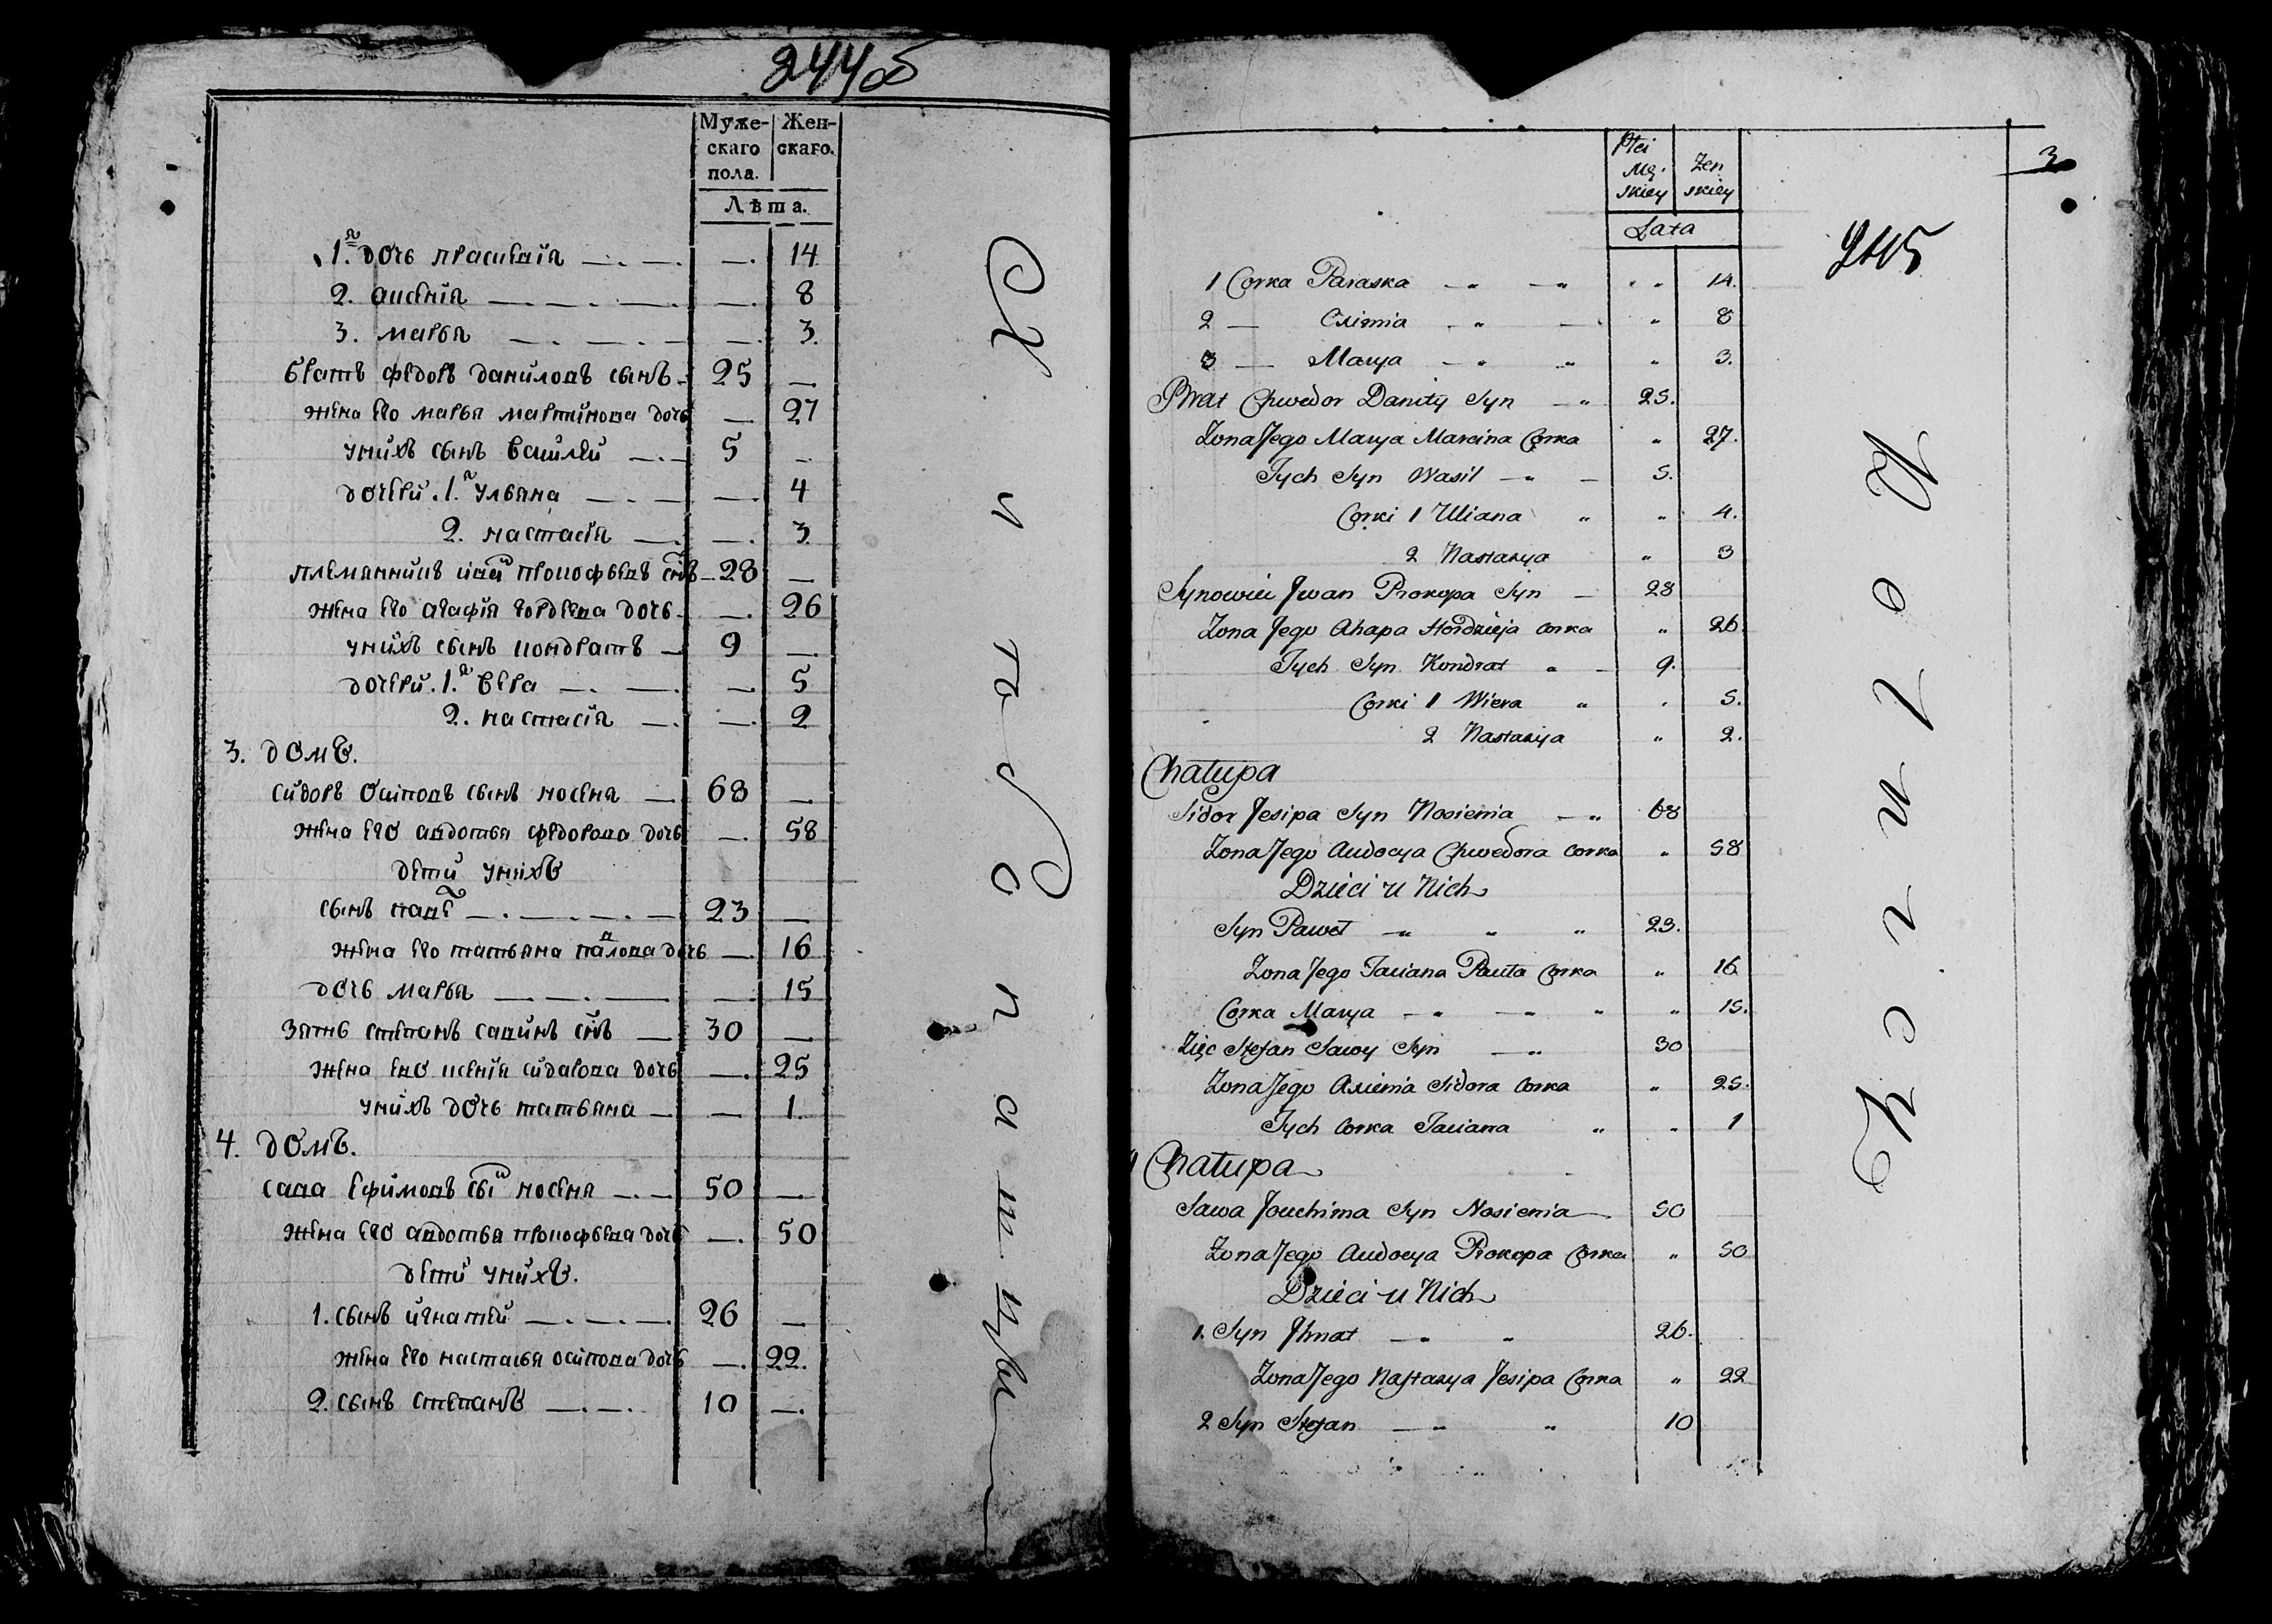 244об
Муже-скаго пола. Жен-скаго.
Лѣта.
1.я дочь прасковія — — 14
2. аксенія — — 8
3. марья — — 3.
братъ федоръ даниловъ сынъ 25 —
жена его марья мартинова дочь — 27
унихъ сынъ василей — 5 —
дочери. 1.я ульяна — — 4
2. настасія — — 3.
племянникъ иванъ прокофьевъ снъ 28 —
жена его агафія гордеева дочь — 26
унихъ сынъ кондратъ — 9 —
дочери. 1.я вера — — 5
2. настасія — — 2
3. домъ.
сидоръ осиповъ сынъ носеня — 68 —
жена его авдотья федорова дочь — 58
дети унихъ
сынъ паве — 23 —
жена его татьяна павлова дочь — 16
дочь марья — — 15
зять степанъ савинъ снъ — 30 —
жена ево ксенія сидарова дочь — 25
унихъ дочь татьяна — — 1.
4. домъ.
сава ефимовъ сы носеня — 50 —
жена его авдотья прокофьева дочь — 50
дети унихъ.
1. сынъ игнатей — 26 —
жена его настасья осипова дочь — 22.
2. сынъ степанъ — 10 —
Płci Mę-skiey Żen skiey
Lata
3
245
1 Corka Paraska — „ — „ „ „ 14.
2 — Cxienia — „ — „ 8
3 — Marya — „ „ „ 3.
Brat Chwedor Daniły Syn — „ 25.
Zona Jego Marya Marcina Corka „ 27.
Tych Syn Wasil — „ — 5.
Corki 1 Uliana „ „ 4.
2 Nastazya „ 3
Synowiec Jwan Prokopa Syn — 28
Zona Jego Ahapa Hordzieja Corka „ 26.
Tych Syn Kondrat „ — 9.
Corki 1 Wiera „ „ 5.
2 Nastazya „ 2.
Chałupa
Sidor Jesipa Syn Nosienia — „ 68
Zona Jego Audocya Chwedora Corka „ 58
Dzieci u Nich
Syn Paweł — „ „ „ 23.
Zona Jego Taciana Pauła Corka „ 16
Corka Marya — „ — „ „ „ 15.
Zięc Stefan Sawy Syn — „ 30
Zona Jego Axienia Sidora Corka „ 25.
Tych Corka Taciana „ „ 1
4 Chałupa
Sawa Jouchima Syn Nosienia — 50
Zona Jego Audocya Prokopa Corka „ 50
Dzieci u Nich
1. Syn Jhnat — „ „ 26.
Zona Jego Nastazya Jesipa Corka „ 22
2 Syn Stefan — „ „ 10